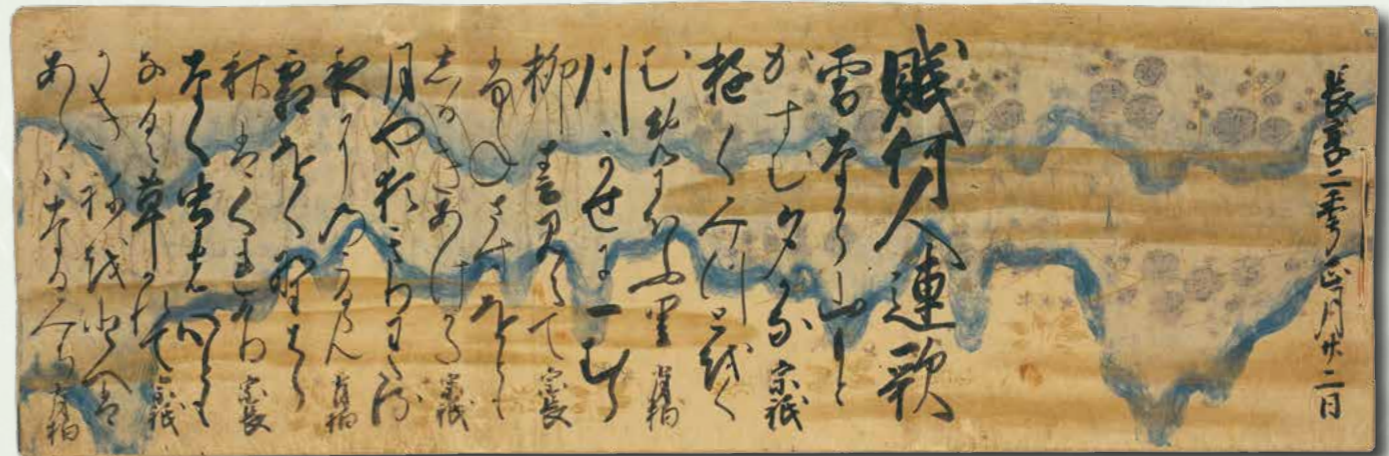 長享二年正月廿二日
賦何人連歌
雪なから山もと
かすむ夕かな 宗祇
ゆくみつとをく
むめにほふ里 肖柏
川かせに一むら
柳春見えて 宗長
舟さすをとも
しるきあけかた 宗祇
月や猶きりわたる
夜にのこるらん 肖柏
霜をく野はら
秋はくれけり 宗長
なく虫の心とも
なく草かれて 宗祇
かきねをとへは
あらはなるみち 肖柏